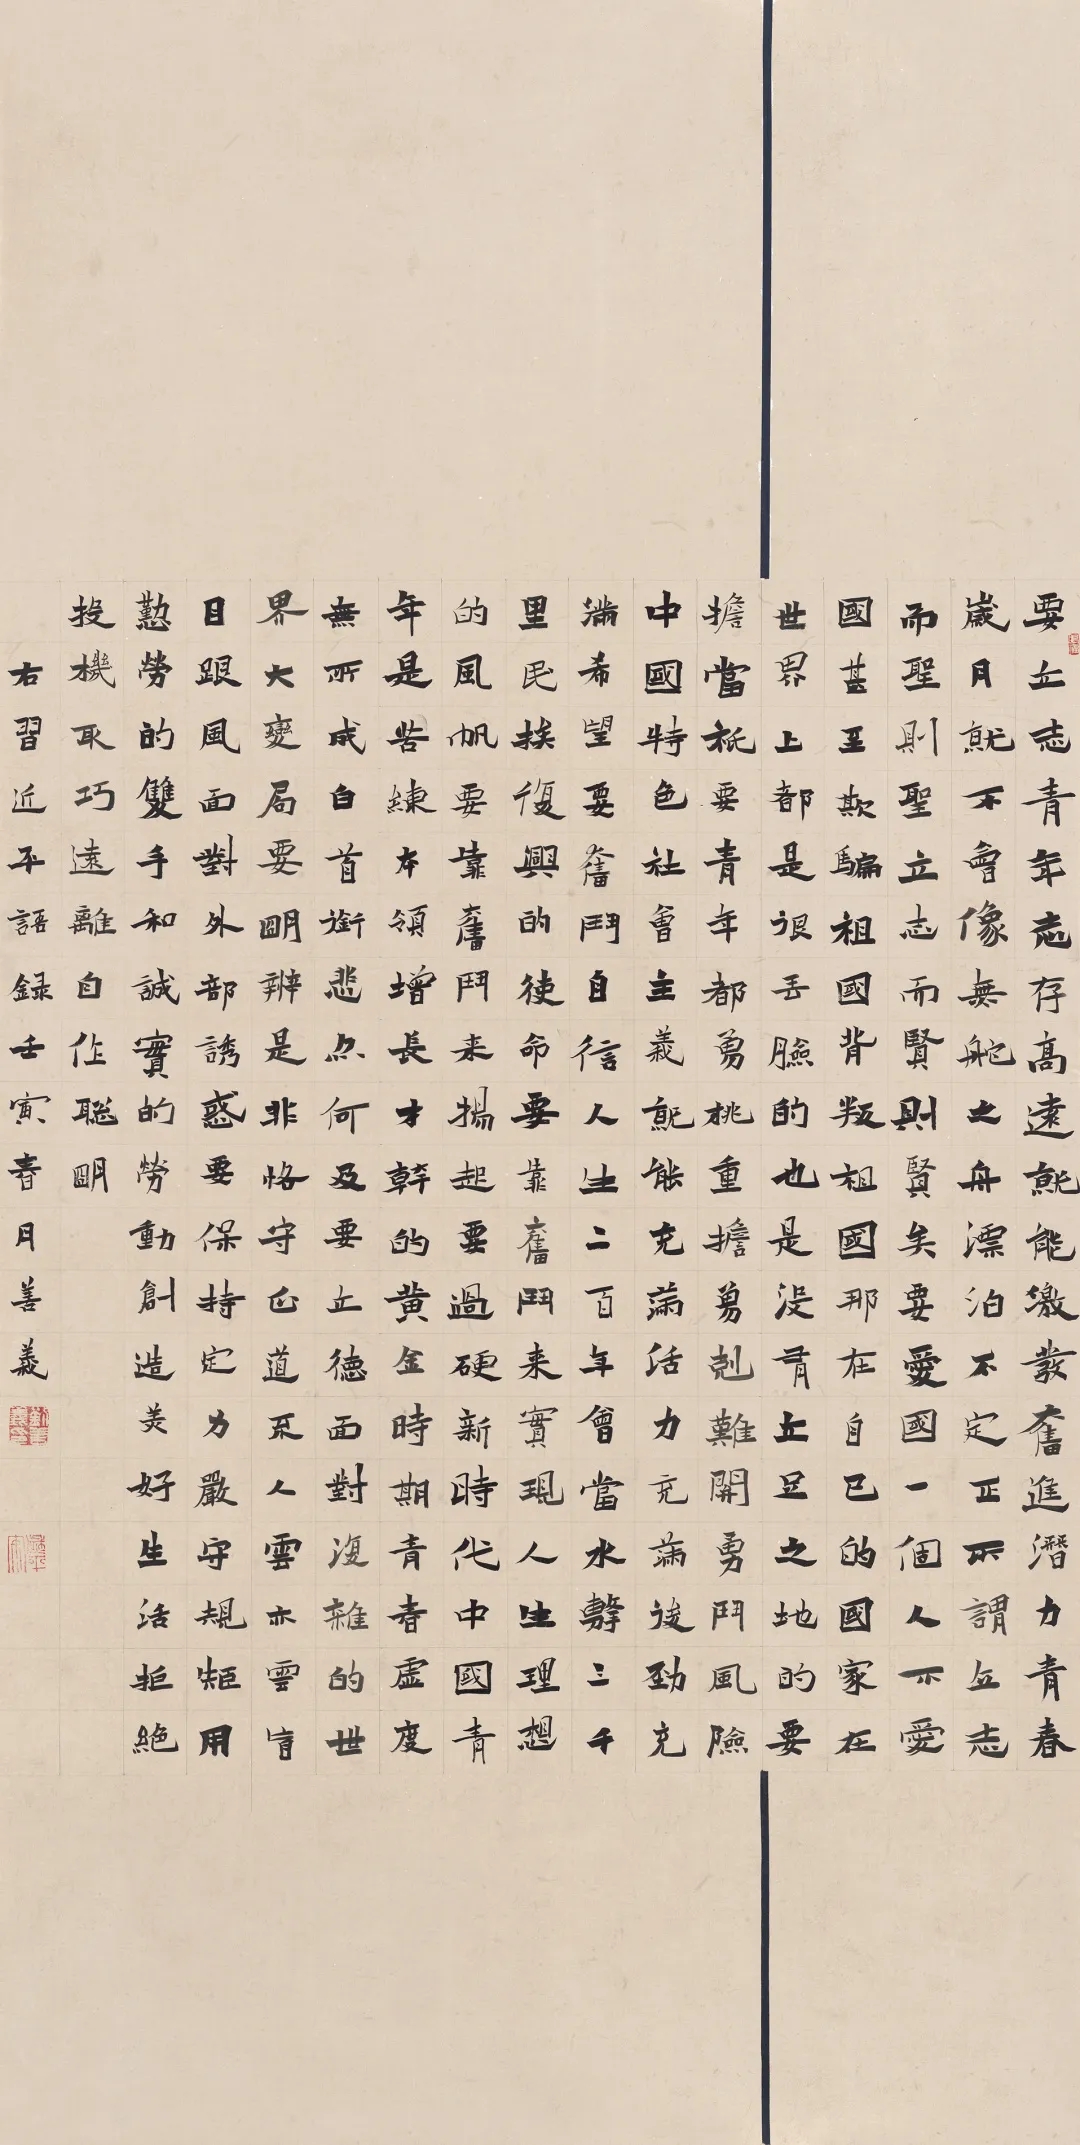 要立志青年志存高遠就能激發奮進潛力青春
歲月就不會像無舵之舟漂泊不定正所謂立志
而聖則聖立志而賢則賢矣要愛國一個人不愛
國甚至欺騙祖國背叛祖國那在自己的國家在
世界上都是很丟臉的也是沒有立足之地的要
擔當祇要青年都勇挑重擔勇剋難開勇鬥風險
中國特色社會主義就能充滿活力充滿後勁充
滿希望要奮鬥自信人生二百年會當水擊三千
里民族復興的使命要靠奮鬥来實現人生理想
的風帆要靠奮鬥来揚起要過硬新時代中國青
年是苦練本領增長才幹的黄金時期青春虛度
無所成白首銜悲亦何及要立德面對復雜的世
界大變局要明辨是非恪守正道不人雲亦雲盲
目跟風面對外部誘惑要保持定力嚴守規矩用
勤勞的雙手和誠實的勞動創造美好生活拒絕
投機取巧遠離自作聰明
右習近平語録壬寅春月善義